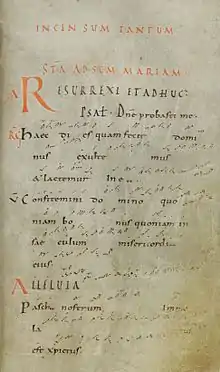 INCENSUM TANTUM
STA AD SCM MARIAM
A RESURREXI ET ADHUC
PSAL Dne probasti me
RG Haec dies quam fecit domi
nus exulte mus
& laetemur In e
V Confitemini domino quo
niam bo nus quoniam in
sae culum misericordi
eius
ALLELUIA
Pascha nostrum Immo
la tus
est xpictus